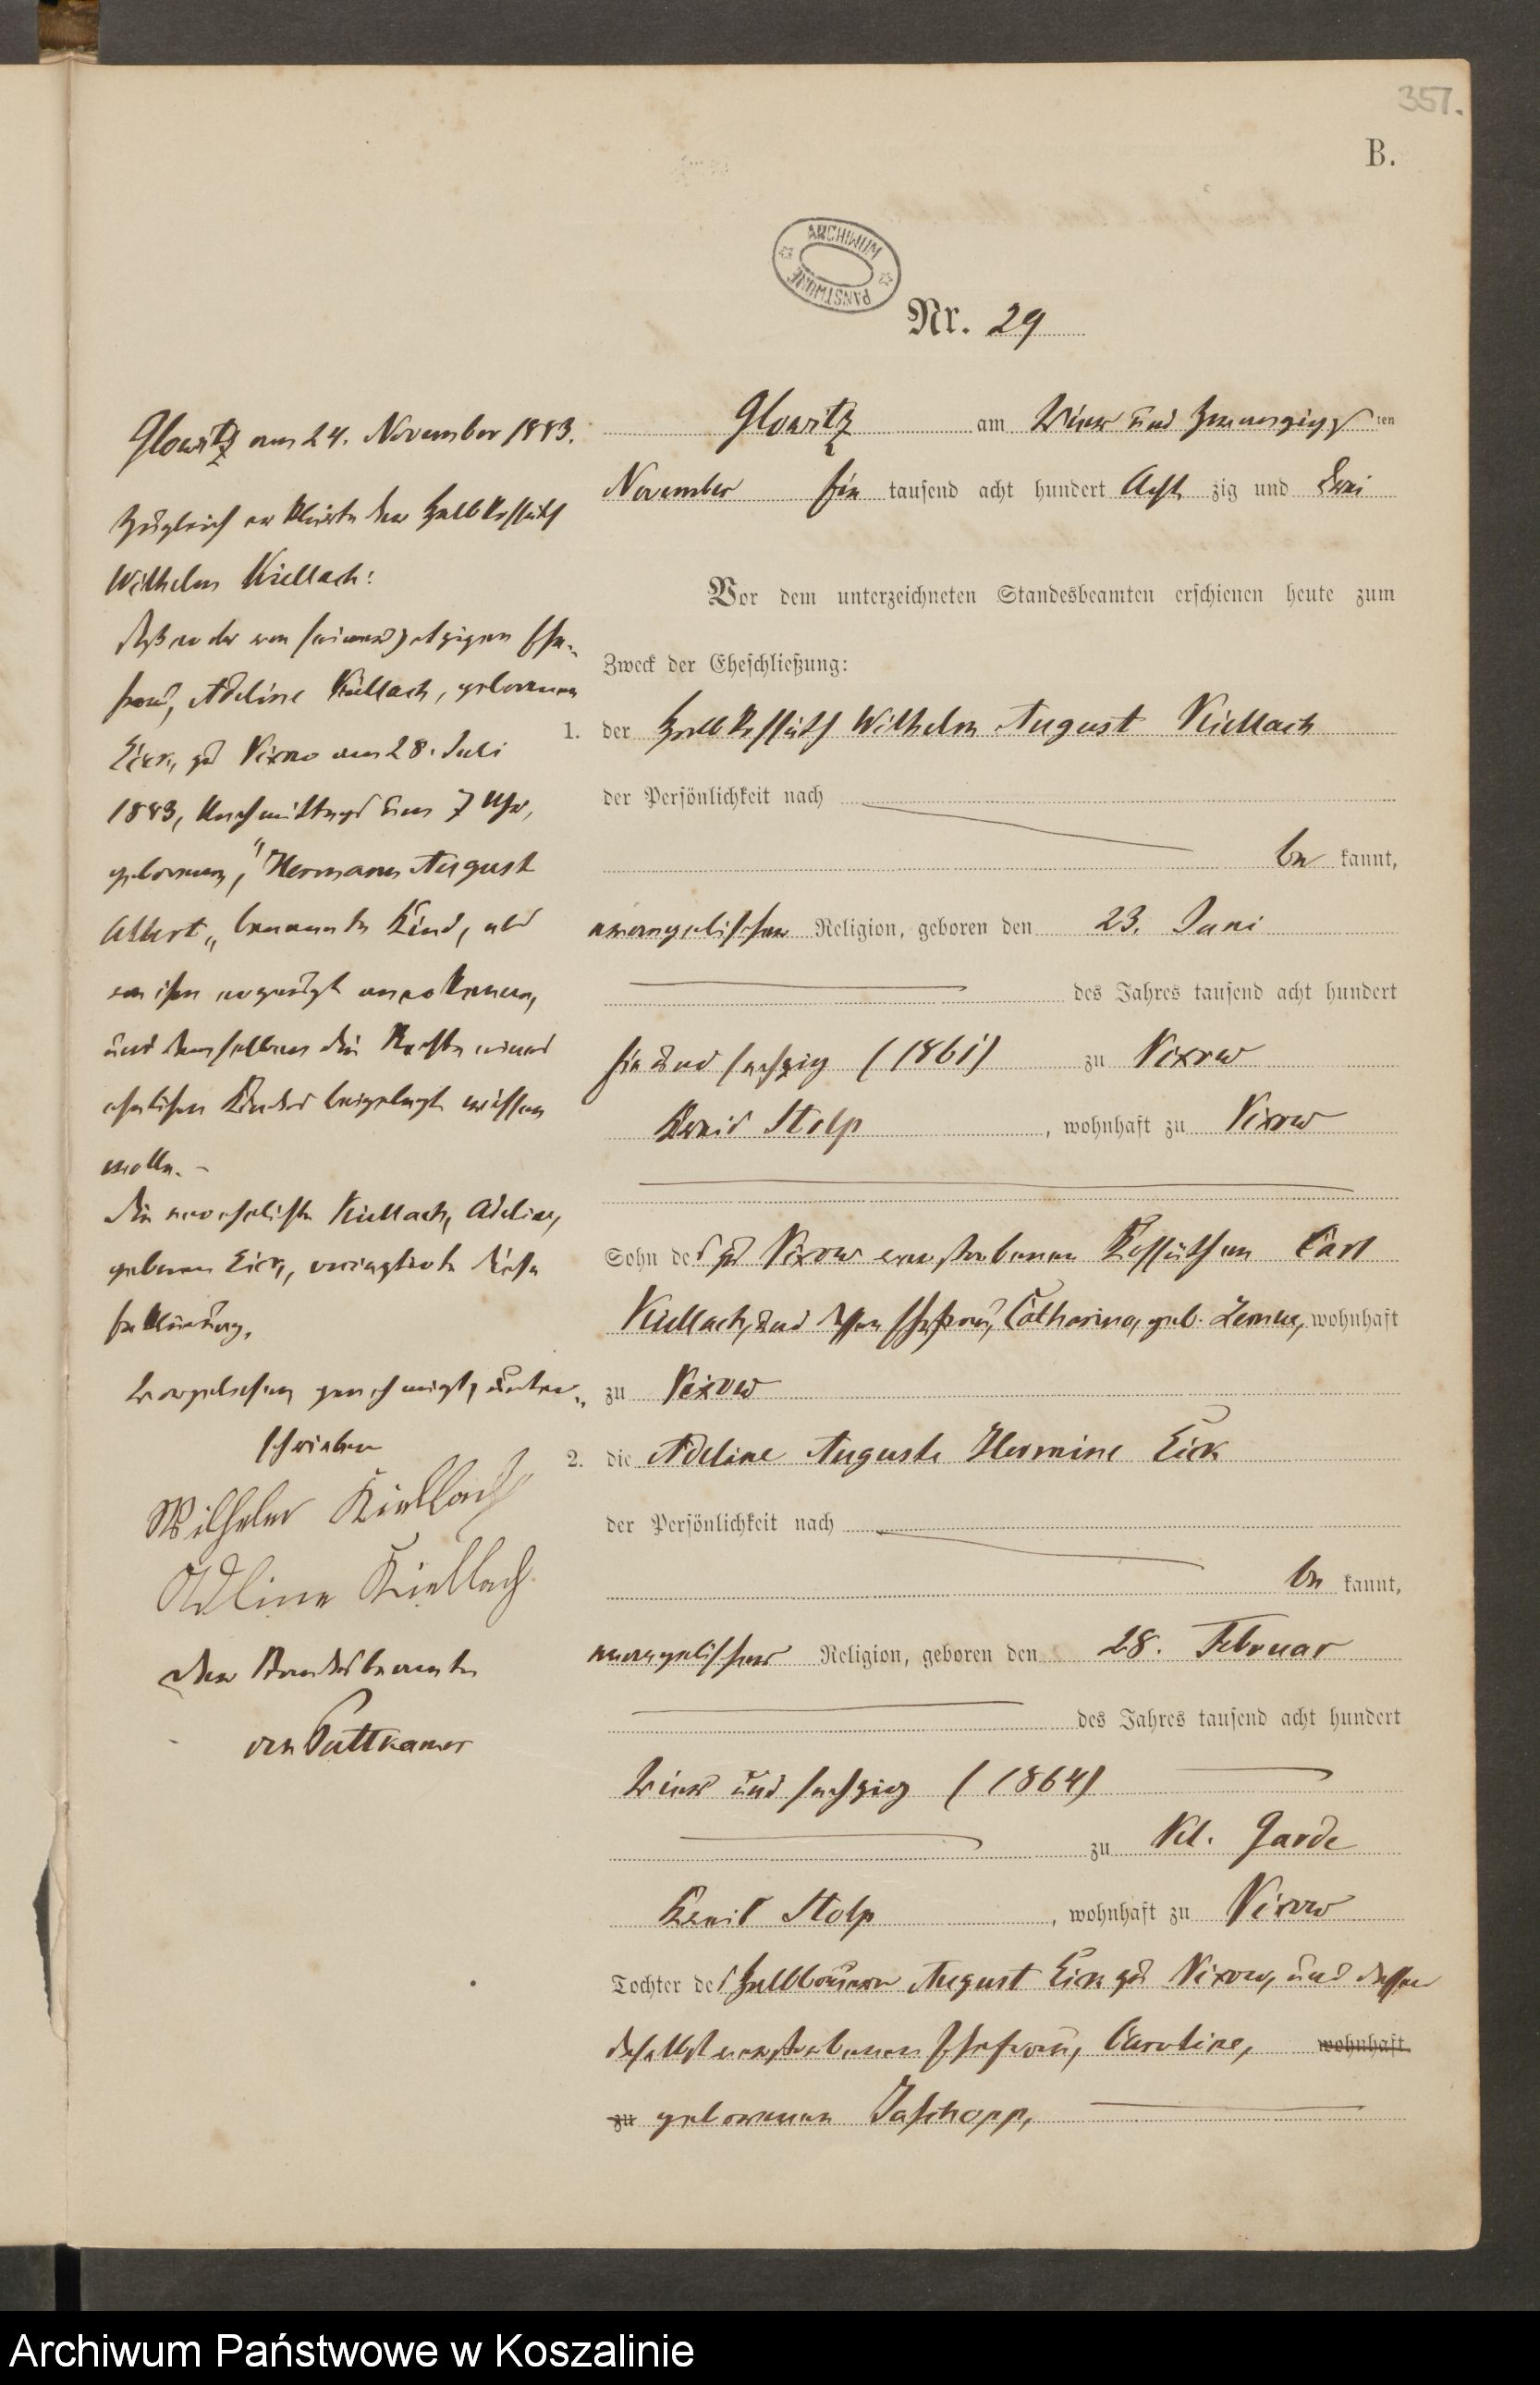 357.
B.
ARCHIWUM PAŃSTWOWE
Nr. 29
Glowitz am 24. November 1883.
Zugleich erklärte der Halbkossäth
Wilhelm Kiellach:
daß er das von seiner jetzigen Ehe-
frau, Adeline Kiellach, geborenen
Eick, zu Vixow am 28. Juli
1883, Nachmittags um 7 Uhr,
geborene, "Hermann August
Albert" benannte Kind, als
von ihm erzeugt anerkenne,
und demselben die Rechte eines
ehelichen Kindes beigelegt wissen
wolle. -
Die verehelichte Kiellach, Adeline,
geborene Eick,
Erklärung.
Vorgelesen, genehmigt, unter-
schrieben
Wilhelm Kiellach
Adline Kiellach
Der Standesbeamte
von Puttkamer
Glowitz am Vier und zwanzigsten
November Ein tausend acht hundert Acht zig und Drei
Vor dem unterzeichneten Standesbeamten erschienen heute zum
Zweck der Eheschließung:
1. der Halbkossäth Wilhelm August Kiellach
der Persönlichkeit nach
be kannt,
evangelischer Religion, geboren den 23. Juni
des Jahres tausend acht hundert
Ein und sechzig (1861) zu Vixow
Kreis Stolp, wohnhaft zu Vixow
Sohn des zu Vixow verstorbenen Kossäthen Carl
Kiellach, und dessen Ehefrau, Catharina, geb. wohnhaft
zu Vixow
2. die Adeline Auguste Hermine Eick
der Persönlichkeit nach
be kannt,
evangelischer Religion, geboren den 28. Februar
des Jahres tausend acht hundert
Vier und sechzig (1864)
zu Kl. Garde
Kreis Stolp, wohnhaft zu Vixow
Tochter des Halbbauern August Eick zu Vixow, und dessen
daselbst verstorbenen Ehefrau, Caroline, wohnhaft
zu geborenen Jaschopp,
Archiwum Państwowe w Koszalinie